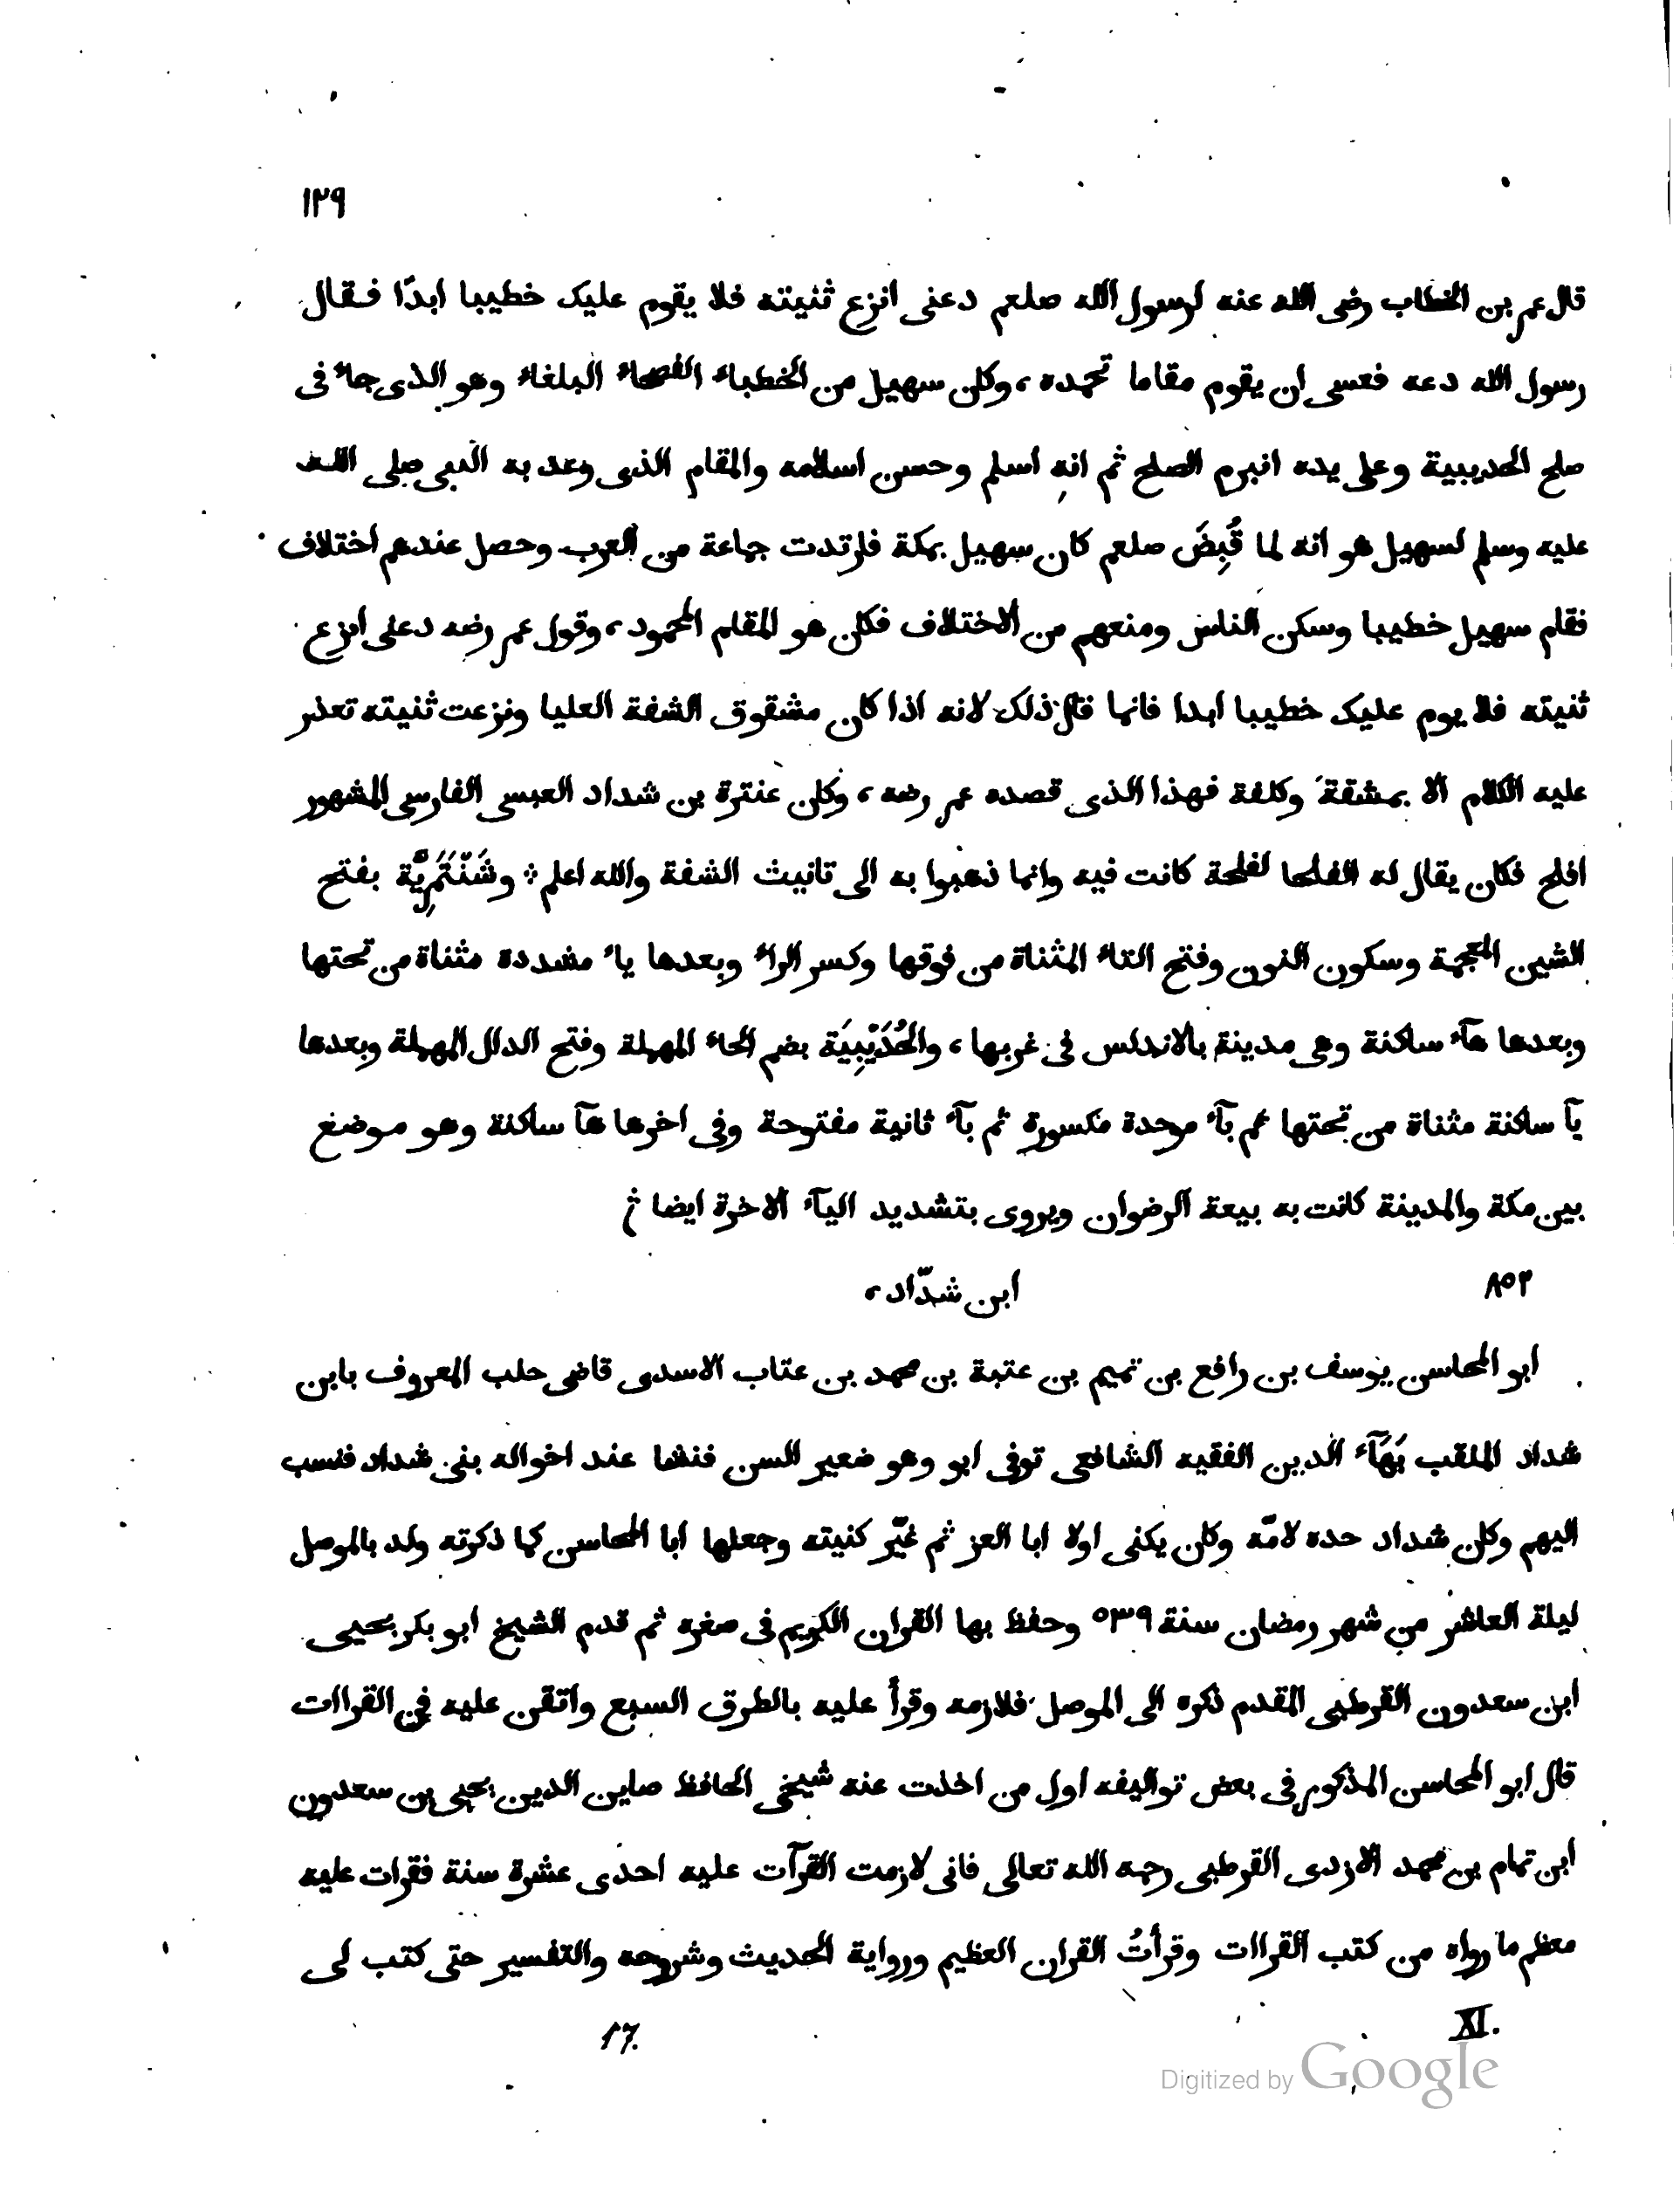 ١٢٩
قال عمر بن الخطاب رضى الله عنه لرسول الله صلعم دعنى انزع ثنيته فلا يقوم عليك خطيبا ابدًا فقال
رسول الله دعه فعسى ان يقوم مقاما تحمده، وكان سهيل من الخطباء الفصحاء البلغاء وهو الذى جاء فى
صلح الحديبية وعلى يده انبرم الصلح ثم انه اسلم وحسن اسلامه والمقام الذى وعد به النبى صلى الله
عليه وسلم لسهيل هو انه لما قُبِضَ صلعم كان سهيل بمكة فارتدت جماعة من العرب وحصل عندهم اختلاف
فقام سهيل خطيبا وسكن الناس ومنعهم من الاختلاف فكان هو المقام المحمود، وقول عمر رضه دعنى انزع
ثنيته فلا يوم عليك خطيبا ابدا فانما قال ذلك لانه اذا كان مشقوق الشفة العليا ونزعت ثنيته تعذر
عليه الكلام الا بمشقة وكلفة فهذا الذى قصده عمر رضه، وكان عنترة بن شداد العبسى الفارسى المشهور
افلح فكان يقال له الفلحا لفلحة كانت فيه وانما ذهبوا به الى تانيث الشفة والله اعلم ۞ وشَنْتَمَرِيَّة بفتح
الشين المعجمة وسكون النون وفتح التاء المثناة من فوقها وكسر الراء وبعدها ياء مشددة مثناة من تحتها
وبعدها هآء ساكنة وهى مدينة بالاندلس فى غربها، والحُدَيْبِيَة بضم الحاء المهملة وفتح الدال المهملة وبعدها
يآ ساكنة مثناة من تحتها ثم بآء موحدة مكسورة ثم بآء ثانية مفتوحة وفى اخرها هآ ساكنة وهو موضع
بين مكة والمدينة كانت به بيعة الرضوان ويروى بتشديد اليآء الاخرة ايضا
٨٥٢ ابن شدّاد،
ابو المحاسن يوسف بن رافع بن تميم بن عتبة بن محمد بن عتاب الاسدى قاضى حلب المعروف بابن
شداد الملقب بَهَآء الدين الفقيه الشافعى توفى ابو وهو ضعير السن فنشا عند اخواله بنى شداد فنسب
اليهم وكان شداد حده لامّه وكان يكنى اولا ابا العز ثم غيّر كنيته وجعلها ابا المحاسن كما ذكرته ولد بالموصل
ليلة العاشر من شهر رمضان سنة ٥٣٩ وحفظ بها القران الكريم فى صغره ثم قدم الشيخ ابو بكر يحيى
ابن سعدون القرطبى المقدم ذكره الى الموصل فلازمه وقرأ عليه بالطرق السبع واتقن عليه فن القراات
قال ابو المحاسن المذكور فى بعض تواليفه اول من اخذت عنه شيخى الحافظ صاين الدين يحيى بن سعدون
ابن تمام بن محمد الازدى القرطبى رحمه الله تعالى فانى لازمت القرآت عليه احدى عشرة سنة فقرات عليه
معظم ما رواه من كتب القراات وقرأتُ القران العظيم ورواية الحديث وشروحه والتفسير حتى كتب لى
XI. 17.
Digitized by Google